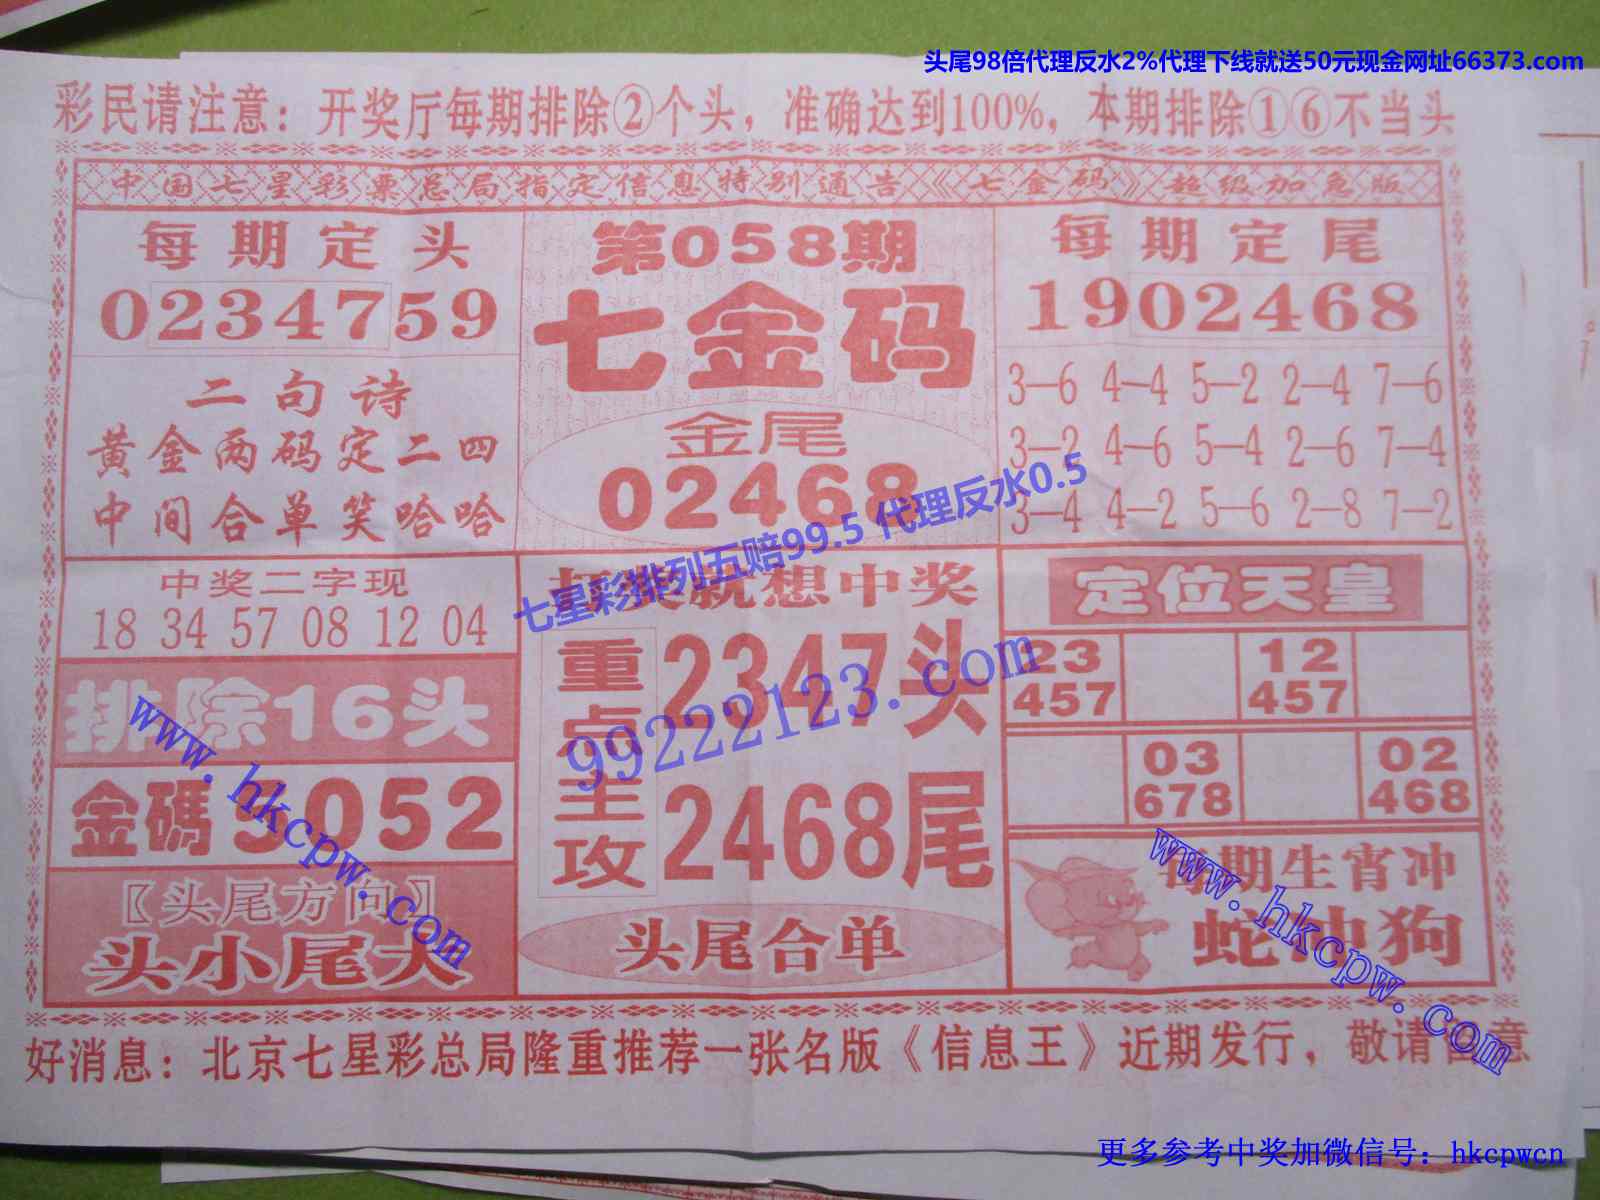 头尾98倍代理反水2%代理下线就送50元现金网址66373.com
彩民请注意：开奖厅每期排除②个头，准确达到100%，本期排除①⑥不当头
中国七星彩票总局指定信息特别通告《七金码》超级加急版
每期定头
0234759
二句诗
黄金两码定二四
中间合单笑哈哈
第058期
七金码
金尾
02468
每期定尾
1902468
3—6 4—4 5—2 2—4 7—6
3—2 4—6 5—4 2—6 7—4
3—4 4—2 5—6 2—8 7—2
七星彩排列五赔99.5 代理反水0.5
中奖二字现
18 34 57 08 12 04
排除16头
金碼 5052
〖头尾方向〗
头小尾大
就想中奖
重点主攻
2347头
2468尾
头尾合单
99222123.com
定位天皇
23 457
12 457
03 678
02 468
每期生肖冲
蛇冲狗
www.hkcpw.com
www.hkcpw.com
好消息：北京七星彩总局隆重推荐一张名版《信息王》近期发行，敬请留意
更多参考中奖加微信号：hkcpwcn